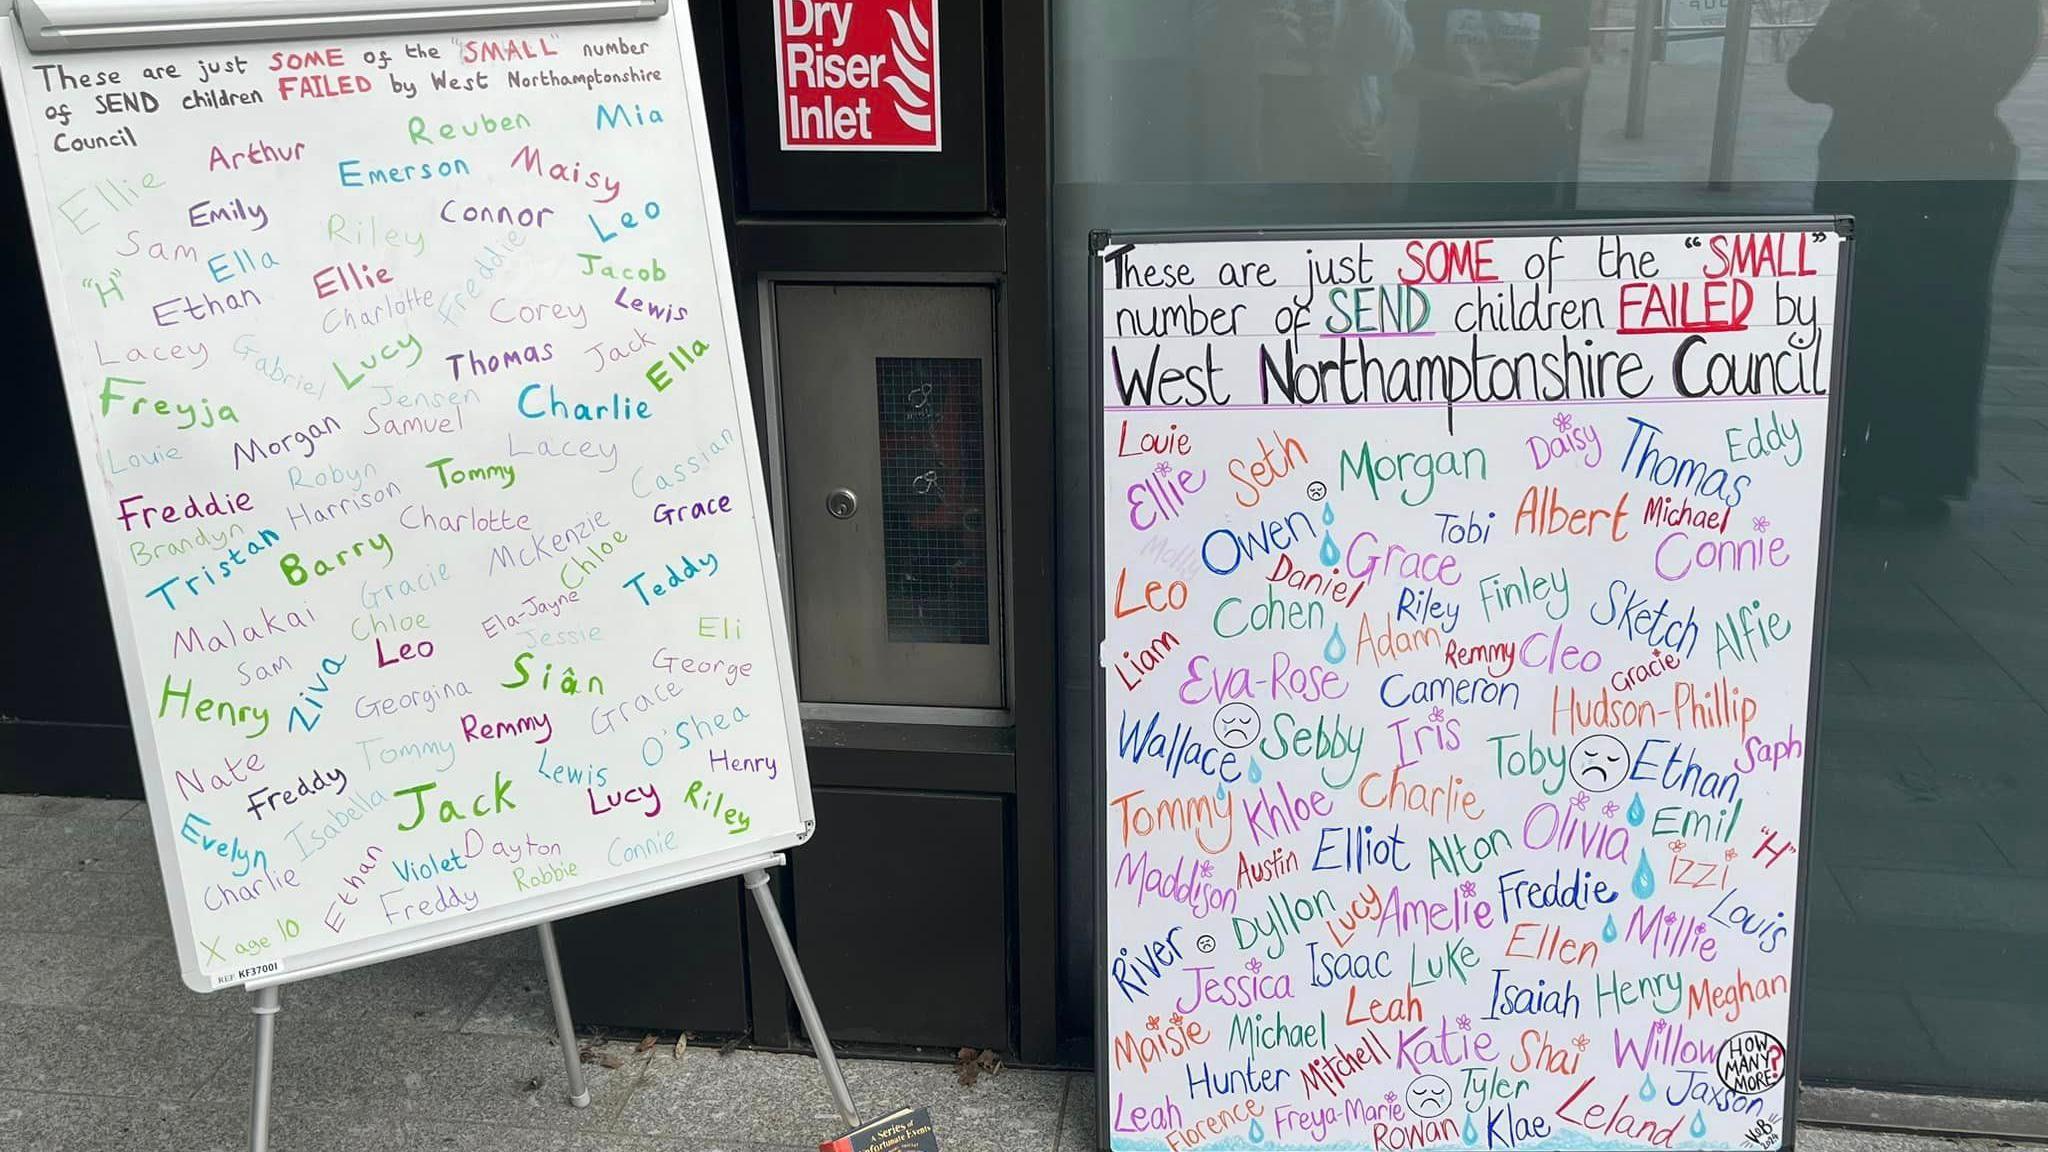 These are just SOME of the "SMALL" number
of SEND children FAILED by West Northamptonshire
Council
Arthur Reuben Mia
Ellie Emerson Maisy
Emily Riley Connor Leo
Sam Ella Ellie Freddie Jacob
"H" Ethan Charlotte Corey Lewis
Lacey Gabriel Lucy Thomas Jack Ella
Freyja Jensen Charlie
Louie Morgan Samuel Lacey
Robyn Tommy Cassian
Freddie Harrison Charlotte Grace
Brandyn
Tristan Barry McKenzie Chloe
Gracie Teddy
Malakai Chloe Ela-Jayne Jessie Eli
Sam Leo Siân George
Henry Ziva Georgina Grace
Remmy O'Shea
Nate Tommy Lewis Henry
Freddy Jack Lucy Riley
Evelyn Isabella
Charlie Ethan Violet Dayton Connie
Freddy Robbie
X age 10
REF KF37001
Dry
Riser
Inlet
These are just SOME of the "SMALL"
number of SEND children FAILED by
West Northamptonshire Council
Louie Seth Morgan Daisy Thomas Eddy
Ellie
Owen Tobi Albert Michael
Molly Grace Connie
Leo Daniel Riley Finley Sketch
Cohen Adam Alfie
Liam Remmy Cleo Gracie
Eva-Rose Cameron Hudson-Phillip
Wallace Sebby Iris Toby Ethan Saph
Tommy Khloe Charlie Olivia Emil "H"
Maddison Austin Elliot Alton Izzi
Dyllon Lucy Amelie Freddie Louis
River Isaac Luke Ellen Millie
Jessica Leah Isaiah Henry Meghan
Maisie Michael Katie Shai Willow
HOW
MANY
MORE?
Hunter Mitchell Tyler Jaxson
Leah Florence Freya-Marie Rowan Klae Leland
KB
2024
A Series of
Unfortunate Events